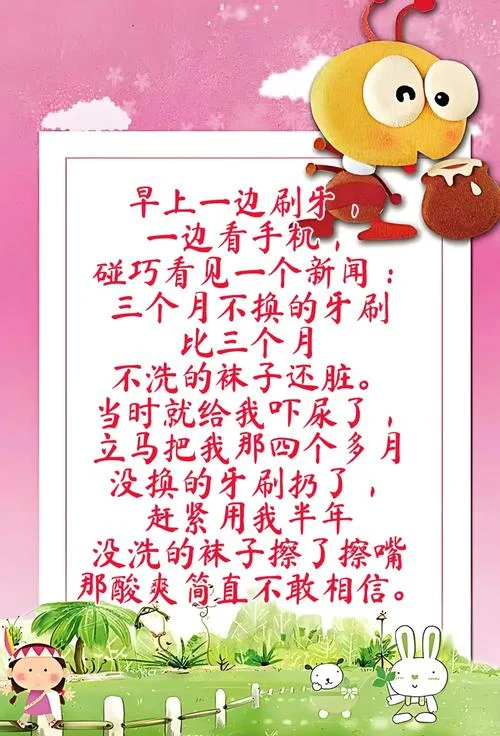 早上一边刷牙，
一边看手机，
碰巧看见一个新闻：
三个月不换的牙刷
比三个月
不洗的袜子还脏。
当时就给我吓尿了，
立马把我那四个多月
没换的牙刷扔了，
赶紧用我半年
没洗的袜子擦了擦嘴
那酸爽简直不敢相信。